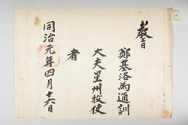 教旨
鄭基洛為通訓
大夫星州牧使
者
同治元年四月十六日